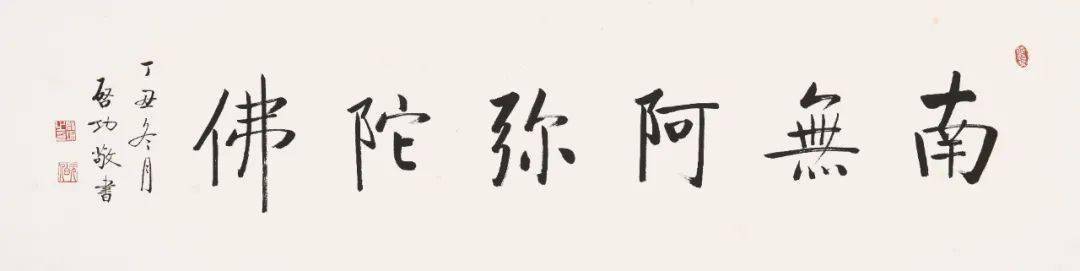 南無阿弥陀佛
丁丑冬月
啓功敬書